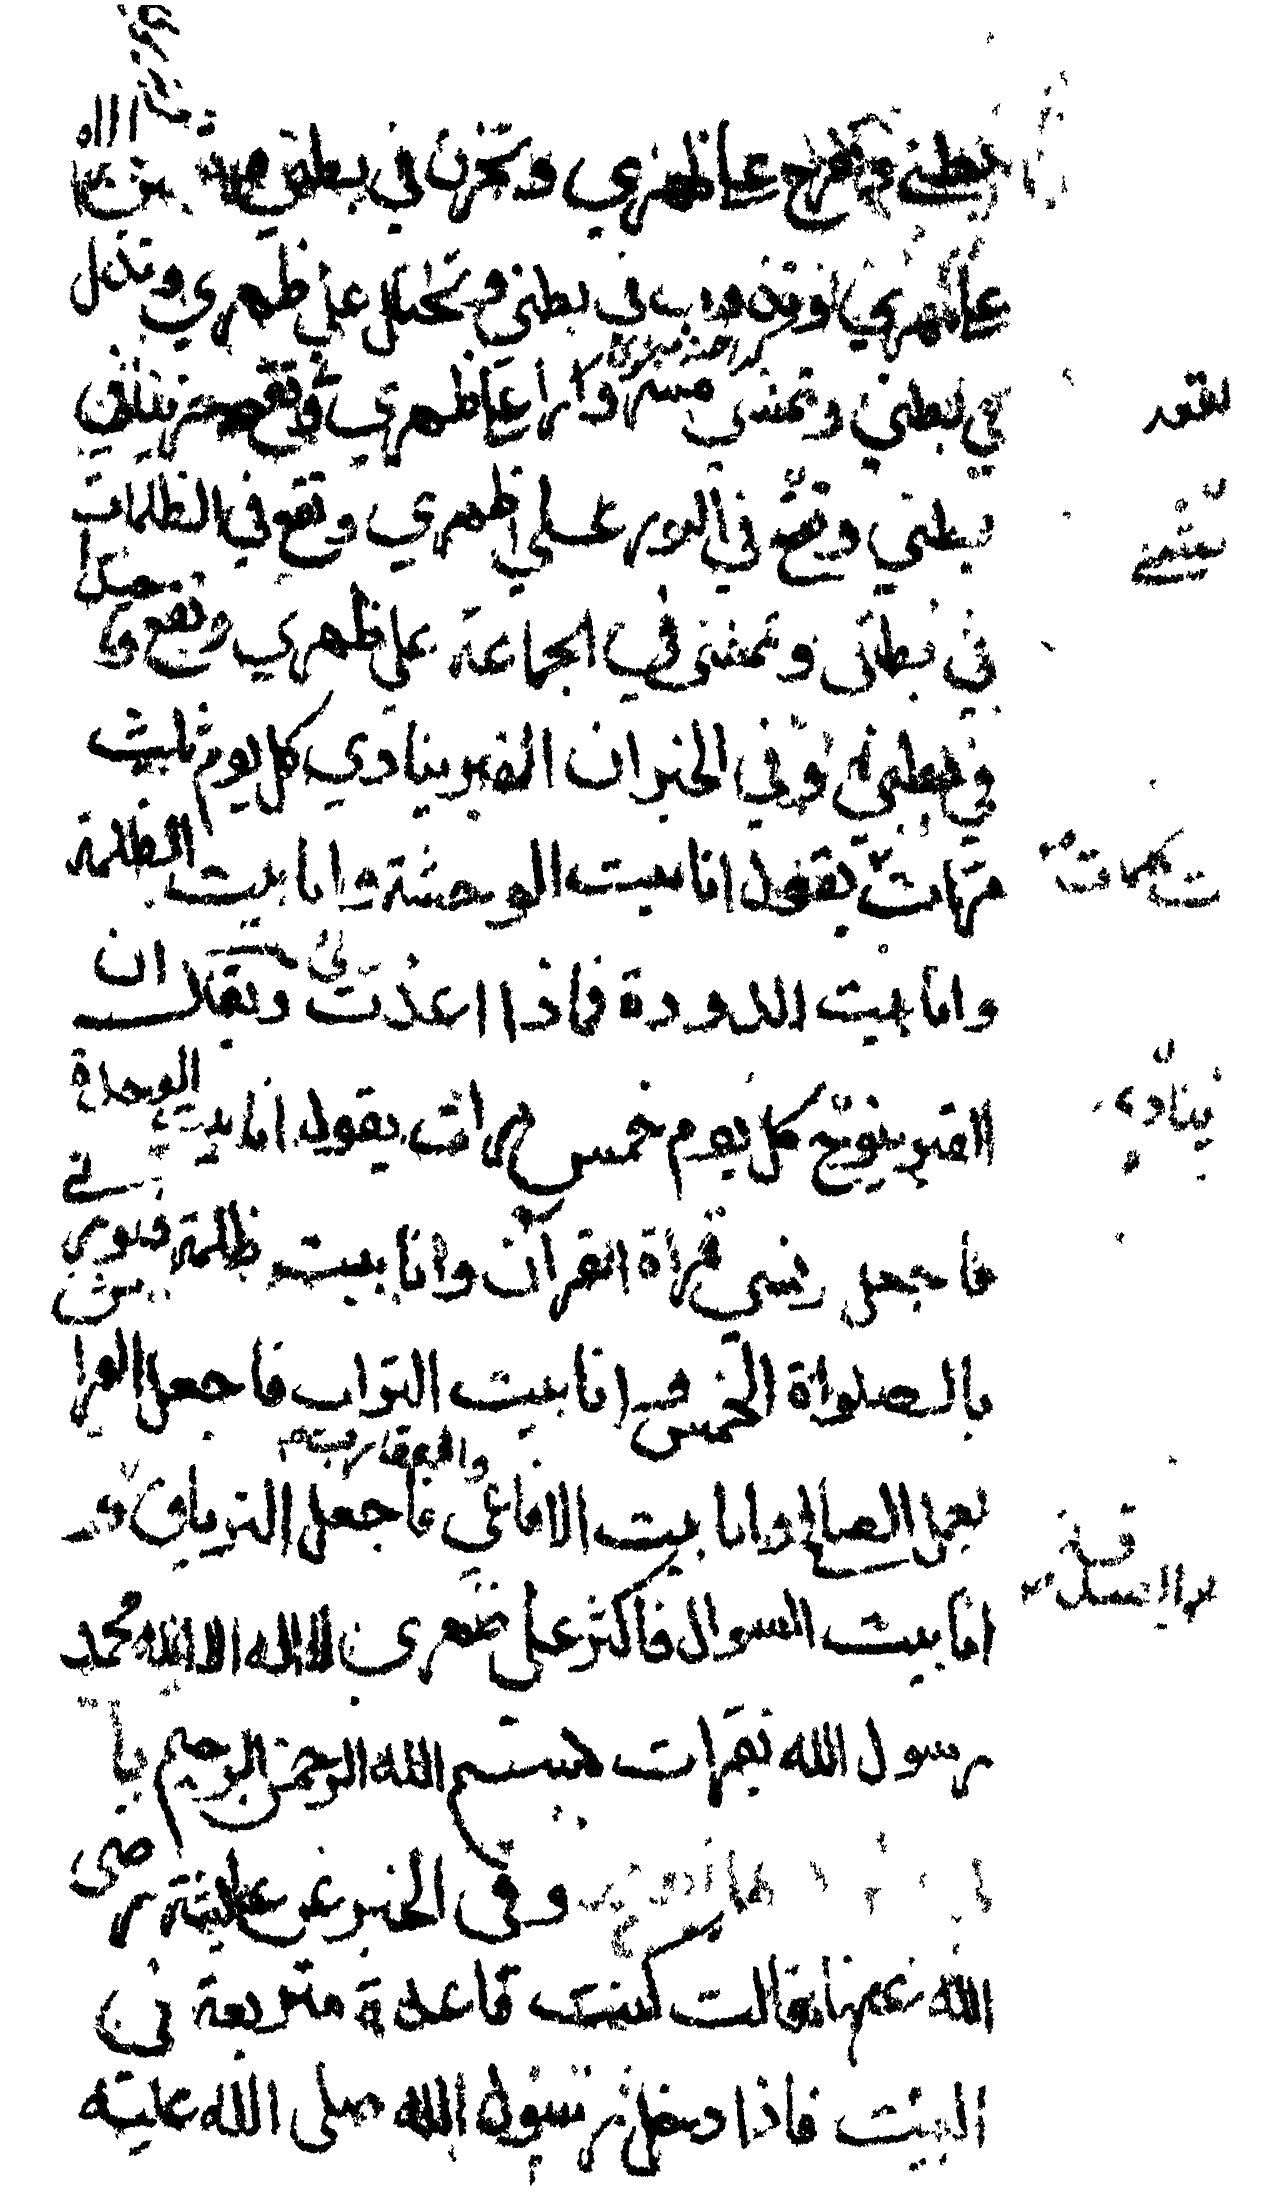 بطني وتفرح على ظهري وتحزن في بطني
على ظهري وتذوب في بطني وتختال على ظهري وتذل
في بطني وتمشي مسرورا على ظهري وتقع حزينا في
بطني وتمشي في النور على ظهري وتقع في الظلمات
في بطني وتمشي في الجماعة على ظهري وتقع وحيدا
في بطني وفي الخبر ان القبر ينادي كل يوم ثلث
مرات يقول انا بيت الوحشة وانا بيت الظلمة
وانا بيت الدودة فماذا اعذت لي ويقال ان
القبر ينوح كل يوم خمس مرات يقول انا بيت الوحدة
فاجعل مونسي قراة القران وانا بيت ظلمة فنورني
بالصلواة الخمس وانا بيت التراب فاجعل الفرا
بعمل الصالح وانا بيت الافاعي والعقارب فاجعل الترياق
انا بيت السوال فاكثر على ظهري لا اله الا الله محمد
رسول الله بقرات بسم الله الرحمن الرحيم
وفي الخبر عن عايشة رضى
الله عنها فقالت كنت قاعدة متربعة في
البيت فاذا دخل رسول الله صلى الله عليه
لقعد
تمشي
كلمات
ينادي